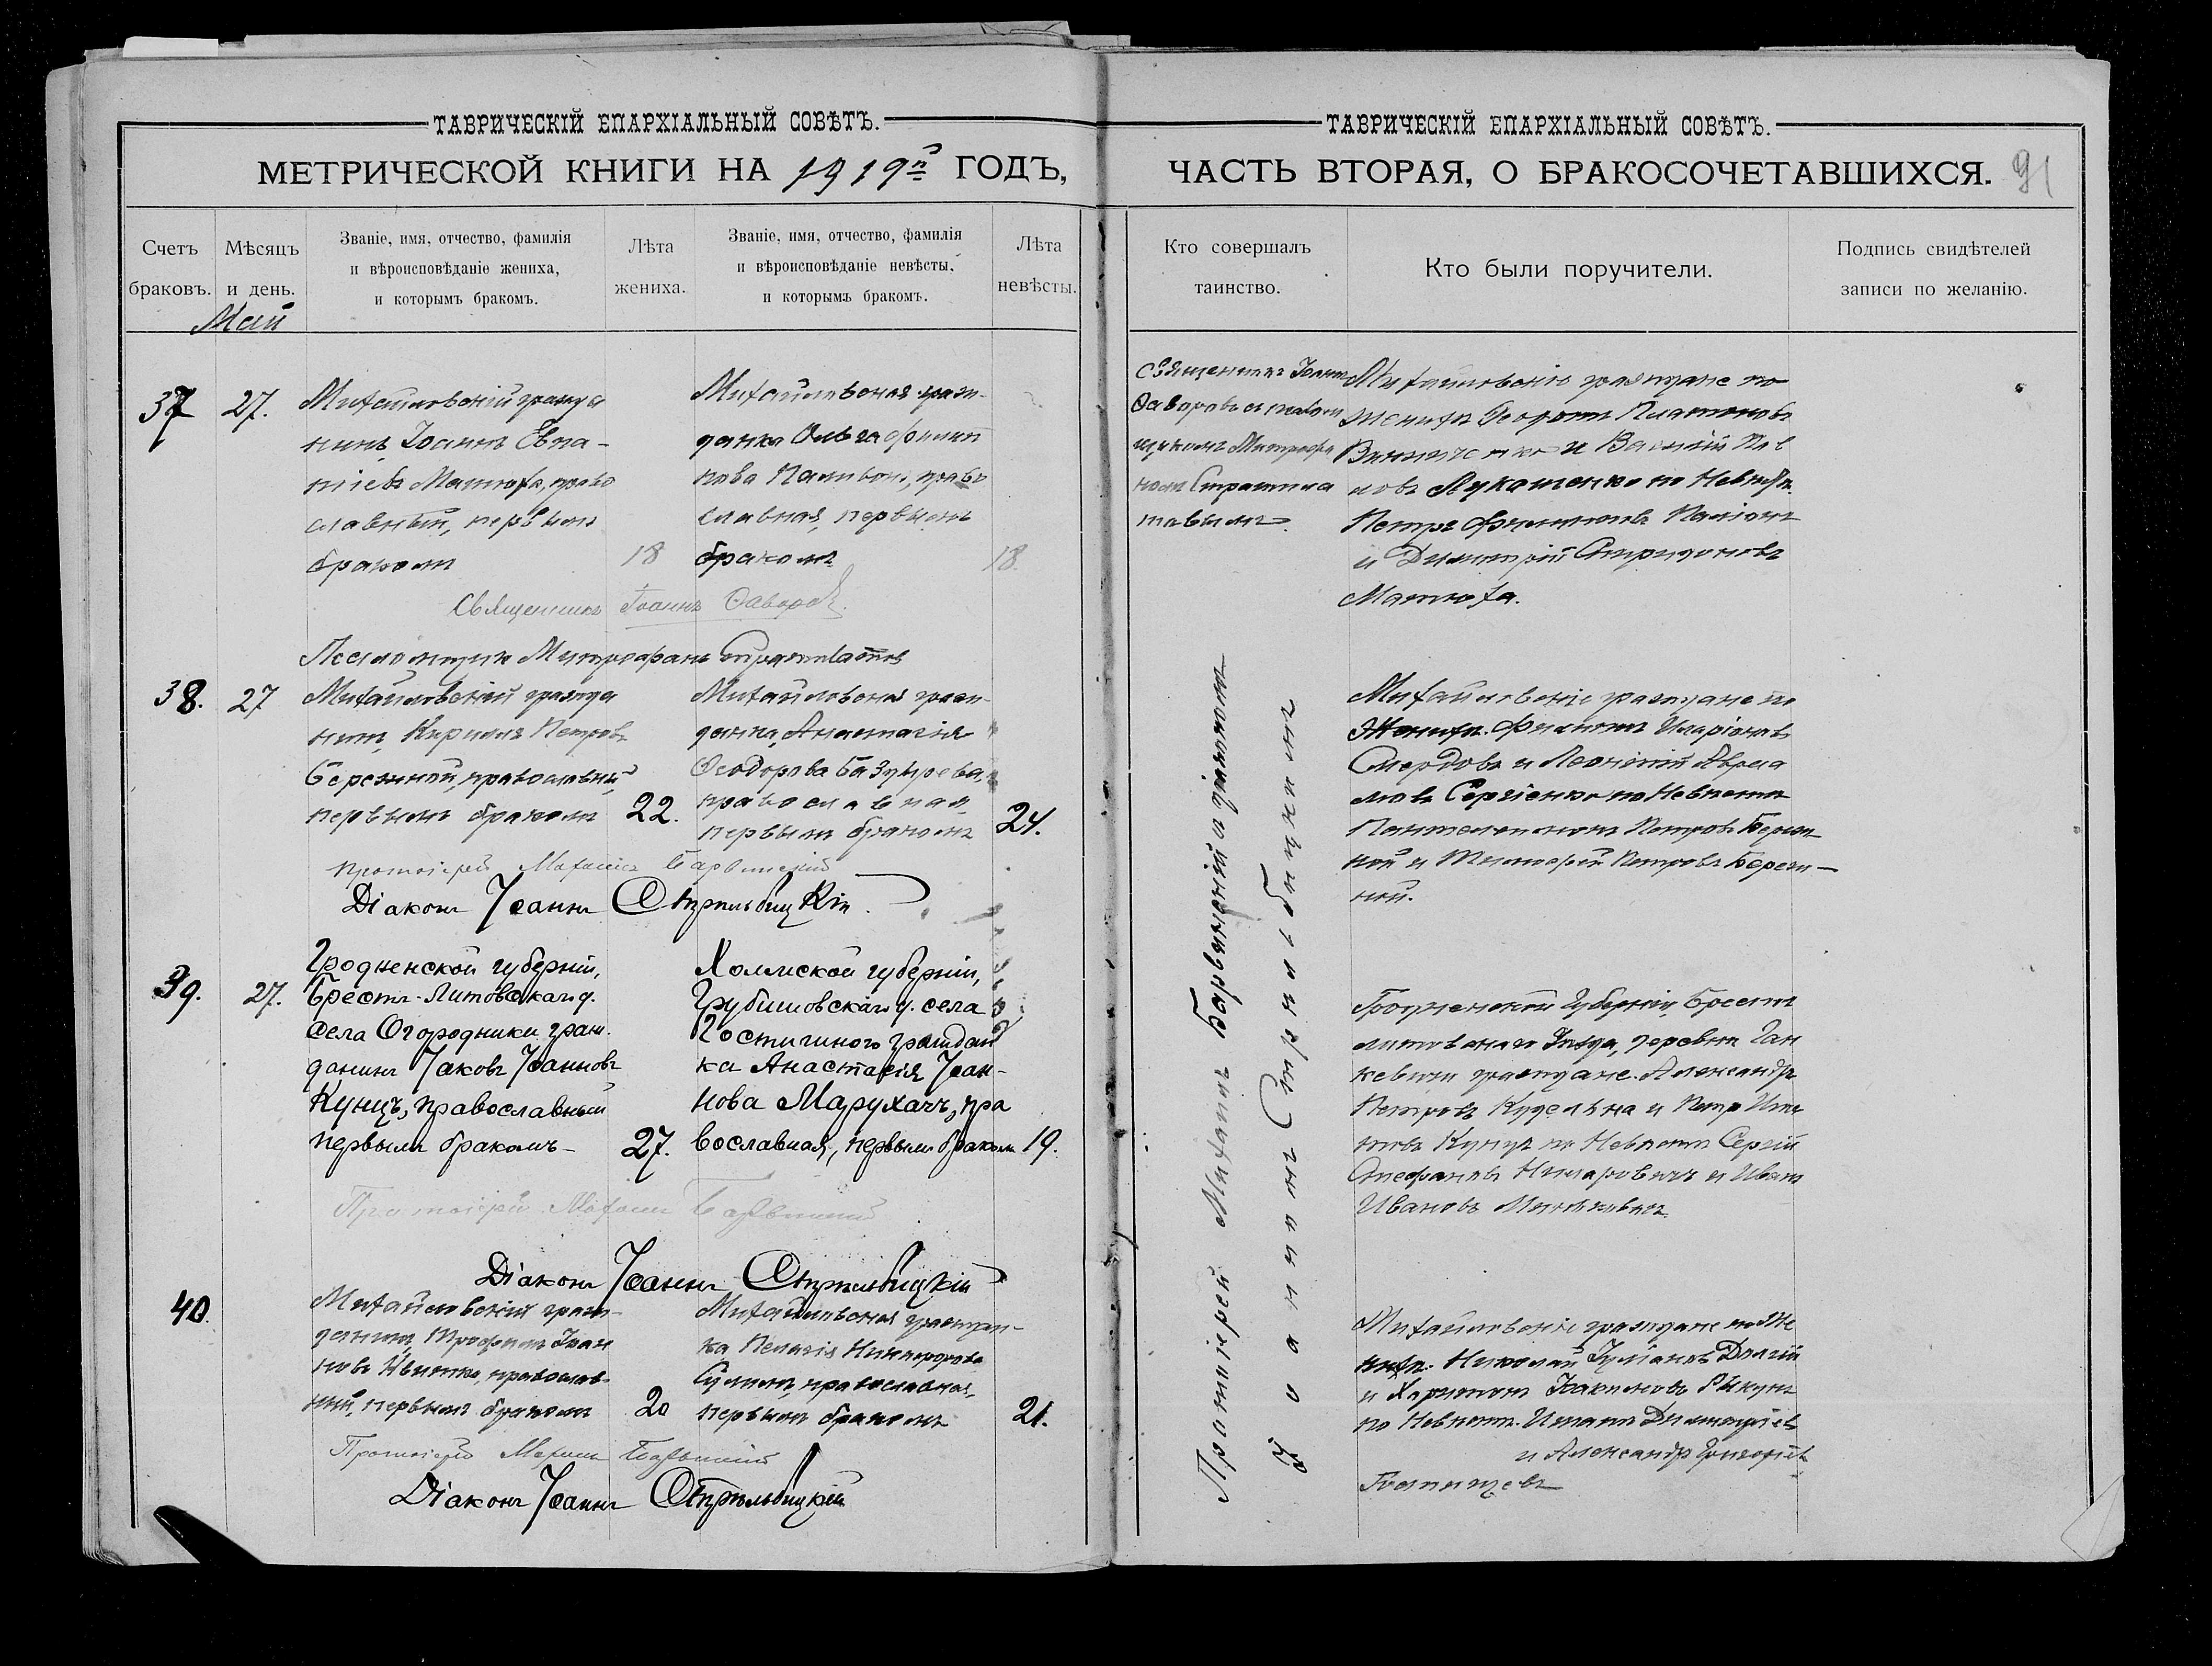 ТАВРИЧЕСКІЙ ЕПАРХІАЛЬНЫЙ СОВѢТЪ.
МЕТРИЧЕСКОЙ КНИГИ НА 1919й ГОДЪ,
Счетъ браковъ.
Мѣсяцъ и день.
Званіе, имя, отчество, фамилія
и вѣроисповѣданіе жениха,
и которымъ бракомъ.
Лѣта жениха.
Званіе, имя, отчество, фамилія
и вѣроисповѣданіе невѣсты,
и которымъ бракомъ.
Лѣта невѣсты.
Май
37
27.
Михайловскій гражда
нинъ Іоаннъ Евпа-
тіевъ Матюха, право
славный, первымъ
бракомъ
18
Михайловская граж-
данка Ольга Филип
пова Паливода, право
славная, первымъ
бракомъ
18.
Священникъ Іоаннъ Ѳаворовъ.
Псаломщикъ Митрофанъ
38.
27
Михайловскій гражда
нинъ, Кириллъ Петровъ
Бережной, православный,
первымъ бракомъ
22.
Михайловская граж-
данка, Анастасія
Ѳеодорова
православная,
первымъ бракомъ
24.
Протоіерей Михаилъ Барвинскій
Діаконъ Іоаннъ Стрѣльбицкій.
39.
27.
Гродненской губерніи,
Брестъ-Литовскаго у.
села Огородники граж.
данинъ Іаковъ Іоанновъ
Кунцъ, православный
первымъ бракомъ
27.
Холмской губерніи,
Грубишовскаго у. села
граждан
ка Анастасія Іоан-
нова Марухачъ, пра
вославная, первымъ бракомъ
19.
Протоіерей Михаилъ Барвинскій
Діаконъ Іоаннъ Стрѣльбицкій
40.
Михайловскій граж-
данинъ, Трофимъ Іоан
новъ Квитка, православ-
ный, первымъ бракомъ
20
Михайловская граждан-
ка Пелагія Никифорова
православная,
первымъ бракомъ
21.
Протоіерей Михаилъ Барвинскій
Діаконъ Іоаннъ Стрѣльбицкій
ТАВРИЧЕСКІЙ ЕПАРХІАЛЬНЫЙ СОВѢТЪ.
ЧАСТЬ ВТОРАЯ, О БРАКОСОЧЕТАВШИХСЯ.
91
Кто совершалъ таинство.
Кто были поручители.
Подпись свидѣтелей
записи по желанію.
Священникъ Іоаннъ
Ѳаворовъ съ псалом
щикомъ Митрофа
номъ
Михайловскіе граждане по
женихѣ Ѳеодотъ Платоновъ
и Василій Пав
ловъ Лукашенко по Невѣстѣ
Петръ Филипповъ
и Димитрій Спиридоновъ
Матюха.
Протоіерей Михаилъ Барвинскій и діаконъ
Іоаннъ Стрѣльбицкій
Михайловскіе граждане по
Женихѣ. Филиппъ Иларіоновъ
Смердовъ и Леонтій Авраа
мовъ Сергіенко по Невѣстѣ
Пантелеимонъ Петровъ Береж
ной и Тимофей Петровъ Береж-
ной.
Гродненской Губерніи Брестъ
литовскаго Уѣзда, деревни
граждане. Александръ
Петровъ и Петръ
Кунцъ по Невѣстѣ Сергій
Стефановъ и Иванъ
Ивановъ
Михайловскіе граждане по Же
нихѣ. Николай Іуліановъ Долгій
и Харитонъ Іоакимовъ
по Невѣстѣ. Игнатъ Димитріевъ
и Александръ Григорьевъ